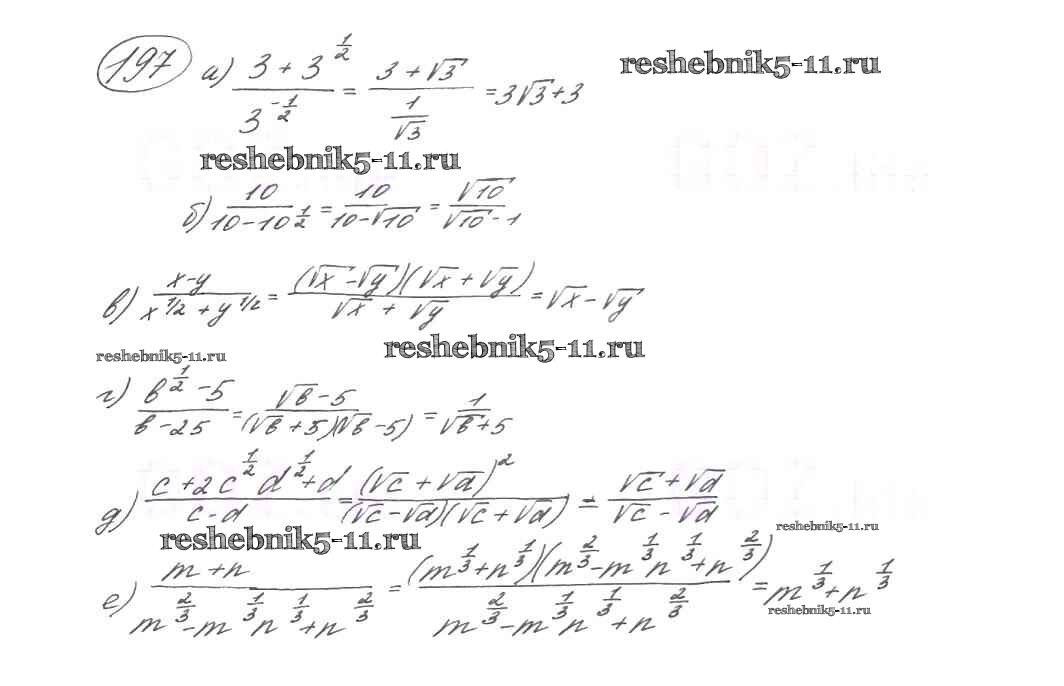 197 а) (3 + 3^(1/2))/(3^(-1/2)) = (3 + √3)/(1/√3) = 3√3 + 3
reshebnik5-11.ru
reshebnik5-11.ru
б) 10/(10 - 10^(1/2)) = 10/(10 - √10) = √10/(√10 - 1)
в) (x - y)/(x^(1/2) + y^(1/2)) = ((√x - √y)(√x + √y))/(√x + √y) = √x - √y
reshebnik5-11.ru
reshebnik5-11.ru
г) (в^(1/2) - 5)/(в - 25) = (√в - 5)/((√в + 5)(√в - 5)) = 1/(√в + 5)
д) (c + 2c^(1/2) d^(1/2) + d)/(c - d) = (√c + √d)^2/((√c - √d)(√c + √d)) = (√c + √d)/(√c - √d)
reshebnik5-11.ru
reshebnik5-11.ru
е) (m + n)/(m^(2/3) - m^(1/3) n^(1/3) + n^(2/3)) = ((m^(1/3) + n^(1/3))(m^(2/3) - m^(1/3) n^(1/3) + n^(2/3)))/(m^(2/3) - m^(1/3) n^(1/3) + n^(2/3)) = m^(1/3) + n^(1/3)
reshebnik5-11.ru